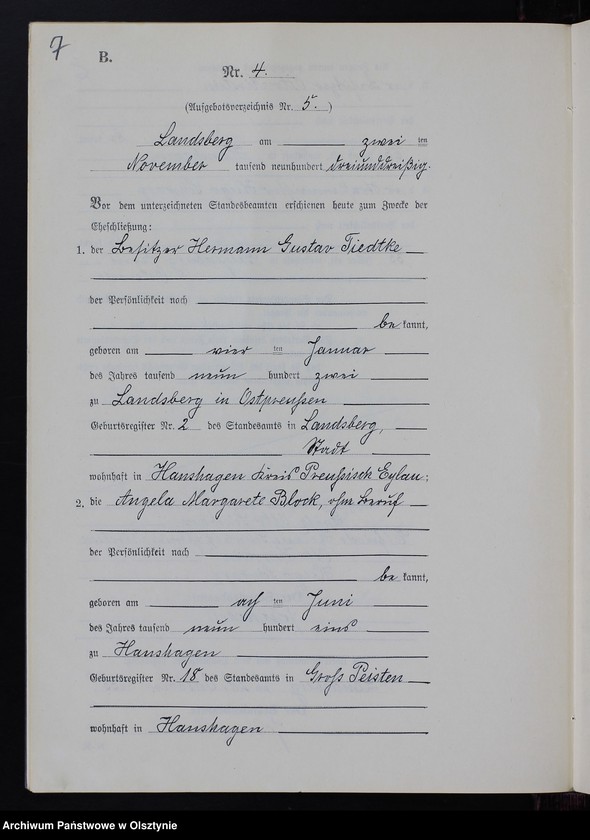 7
B.
Nr. 4.
(Aufgebotsverzeichnis Nr. 5.)
Landsberg am zwei ten
November tausend neunhundert dreiunddreißig.
Vor dem unterzeichneten Standesbeamten erschienen heute zum Zwecke der
Eheschließung:
1. der Besitzer Hermann Gustav Tiedtke
der Persönlichkeit nach
be kannt,
geboren am vier ten Januar
des Jahres tausend neun hundert zwei
zu Landsberg in Ostpreußen
Geburtsregister Nr. 2 des Standesamts in Landsberg,
Stadt
wohnhaft in Hanshagen Kreis Preußisch Eylau;
2. die Angela Margarete Block, ohne Beruf
der Persönlichkeit nach
be kannt,
geboren am ach ten Juni
des Jahres tausend neun hundert eins
zu Hanshagen
Geburtsregister Nr. 18 des Standesamts in Groß Peisten
wohnhaft in Hanshagen
Archiwum Państwowe w Olsztynie